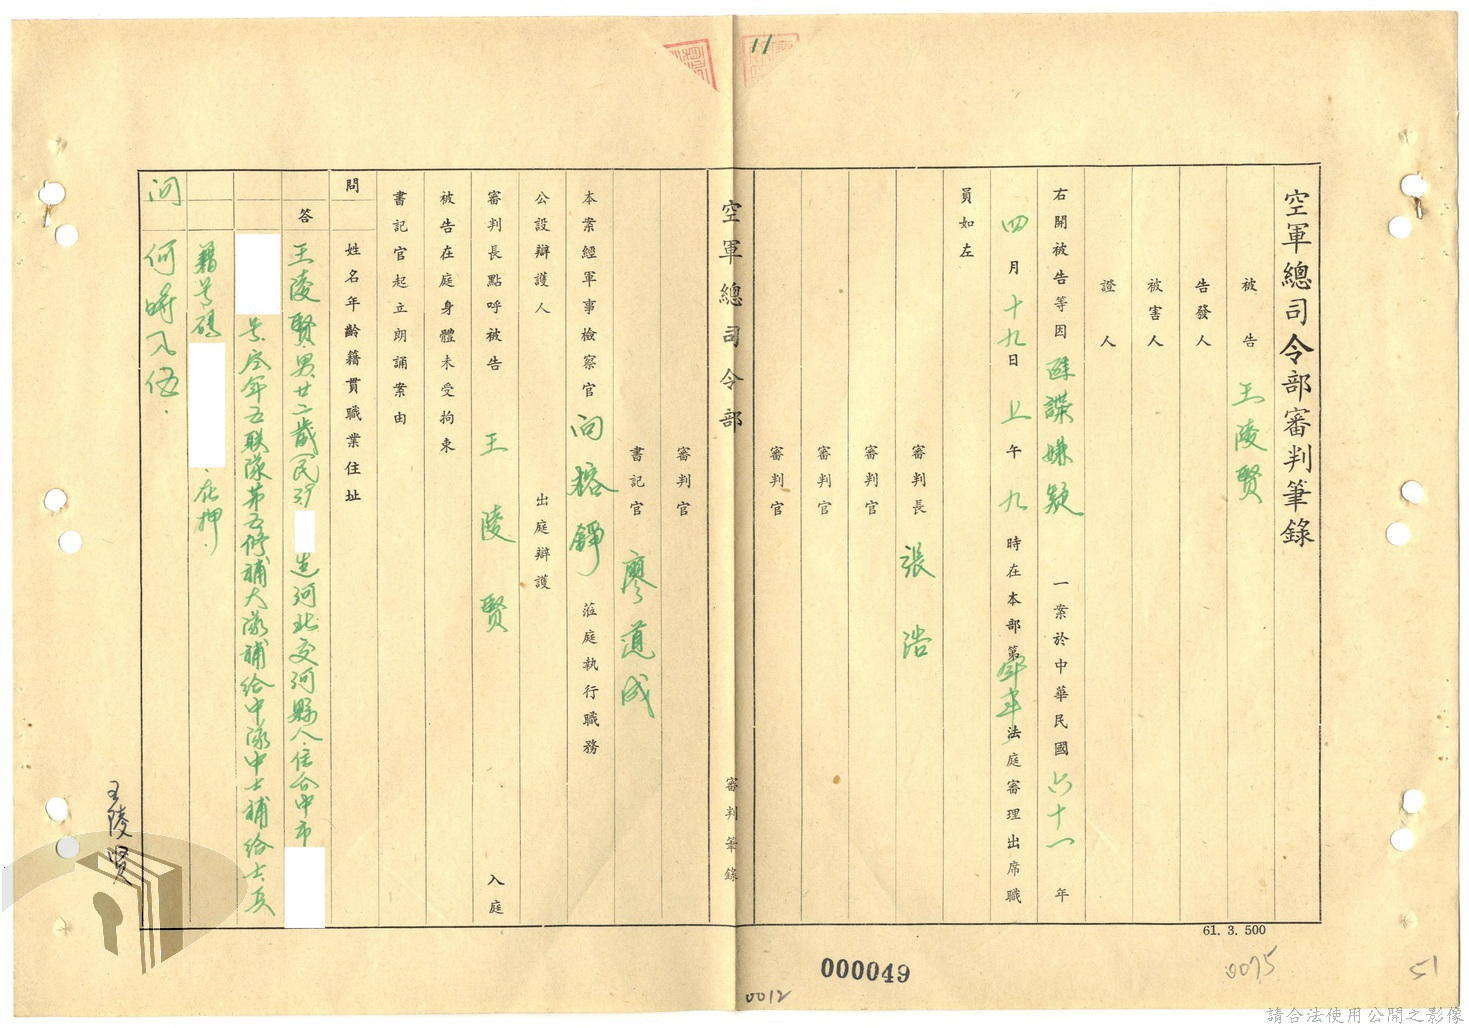 空軍總司令部審判筆錄
被告 王陵賢
告發人
被害人
證人
右開被告等因 嫌疑 一案於中華民國 六十一 年
四月十九日上午九時在本部第 法庭審理出席職
員如左
審判長 張浩
審判官
審判官
審判官
空軍總司令部 審判筆錄
審判官
書記官 廖道成
本案經軍事檢察官 向榕錚 蒞庭執行職務
公設辯護人 出庭辯護
審判長點呼被告 王陵賢 入庭
被告在庭身體未受拘束
書記官起立朗誦案由
問 姓名年齡籍貫職業住址
答 王陵賢男廿二歲民39 生河北交河縣人住台中市
号空軍五联隊第五修補大隊補給中隊中士補給士兵
籍号碼 在押
问 何時入伍
王陵贤
11
61. 3. 500
000049
0012
0075
51
請合法使用公開之影像